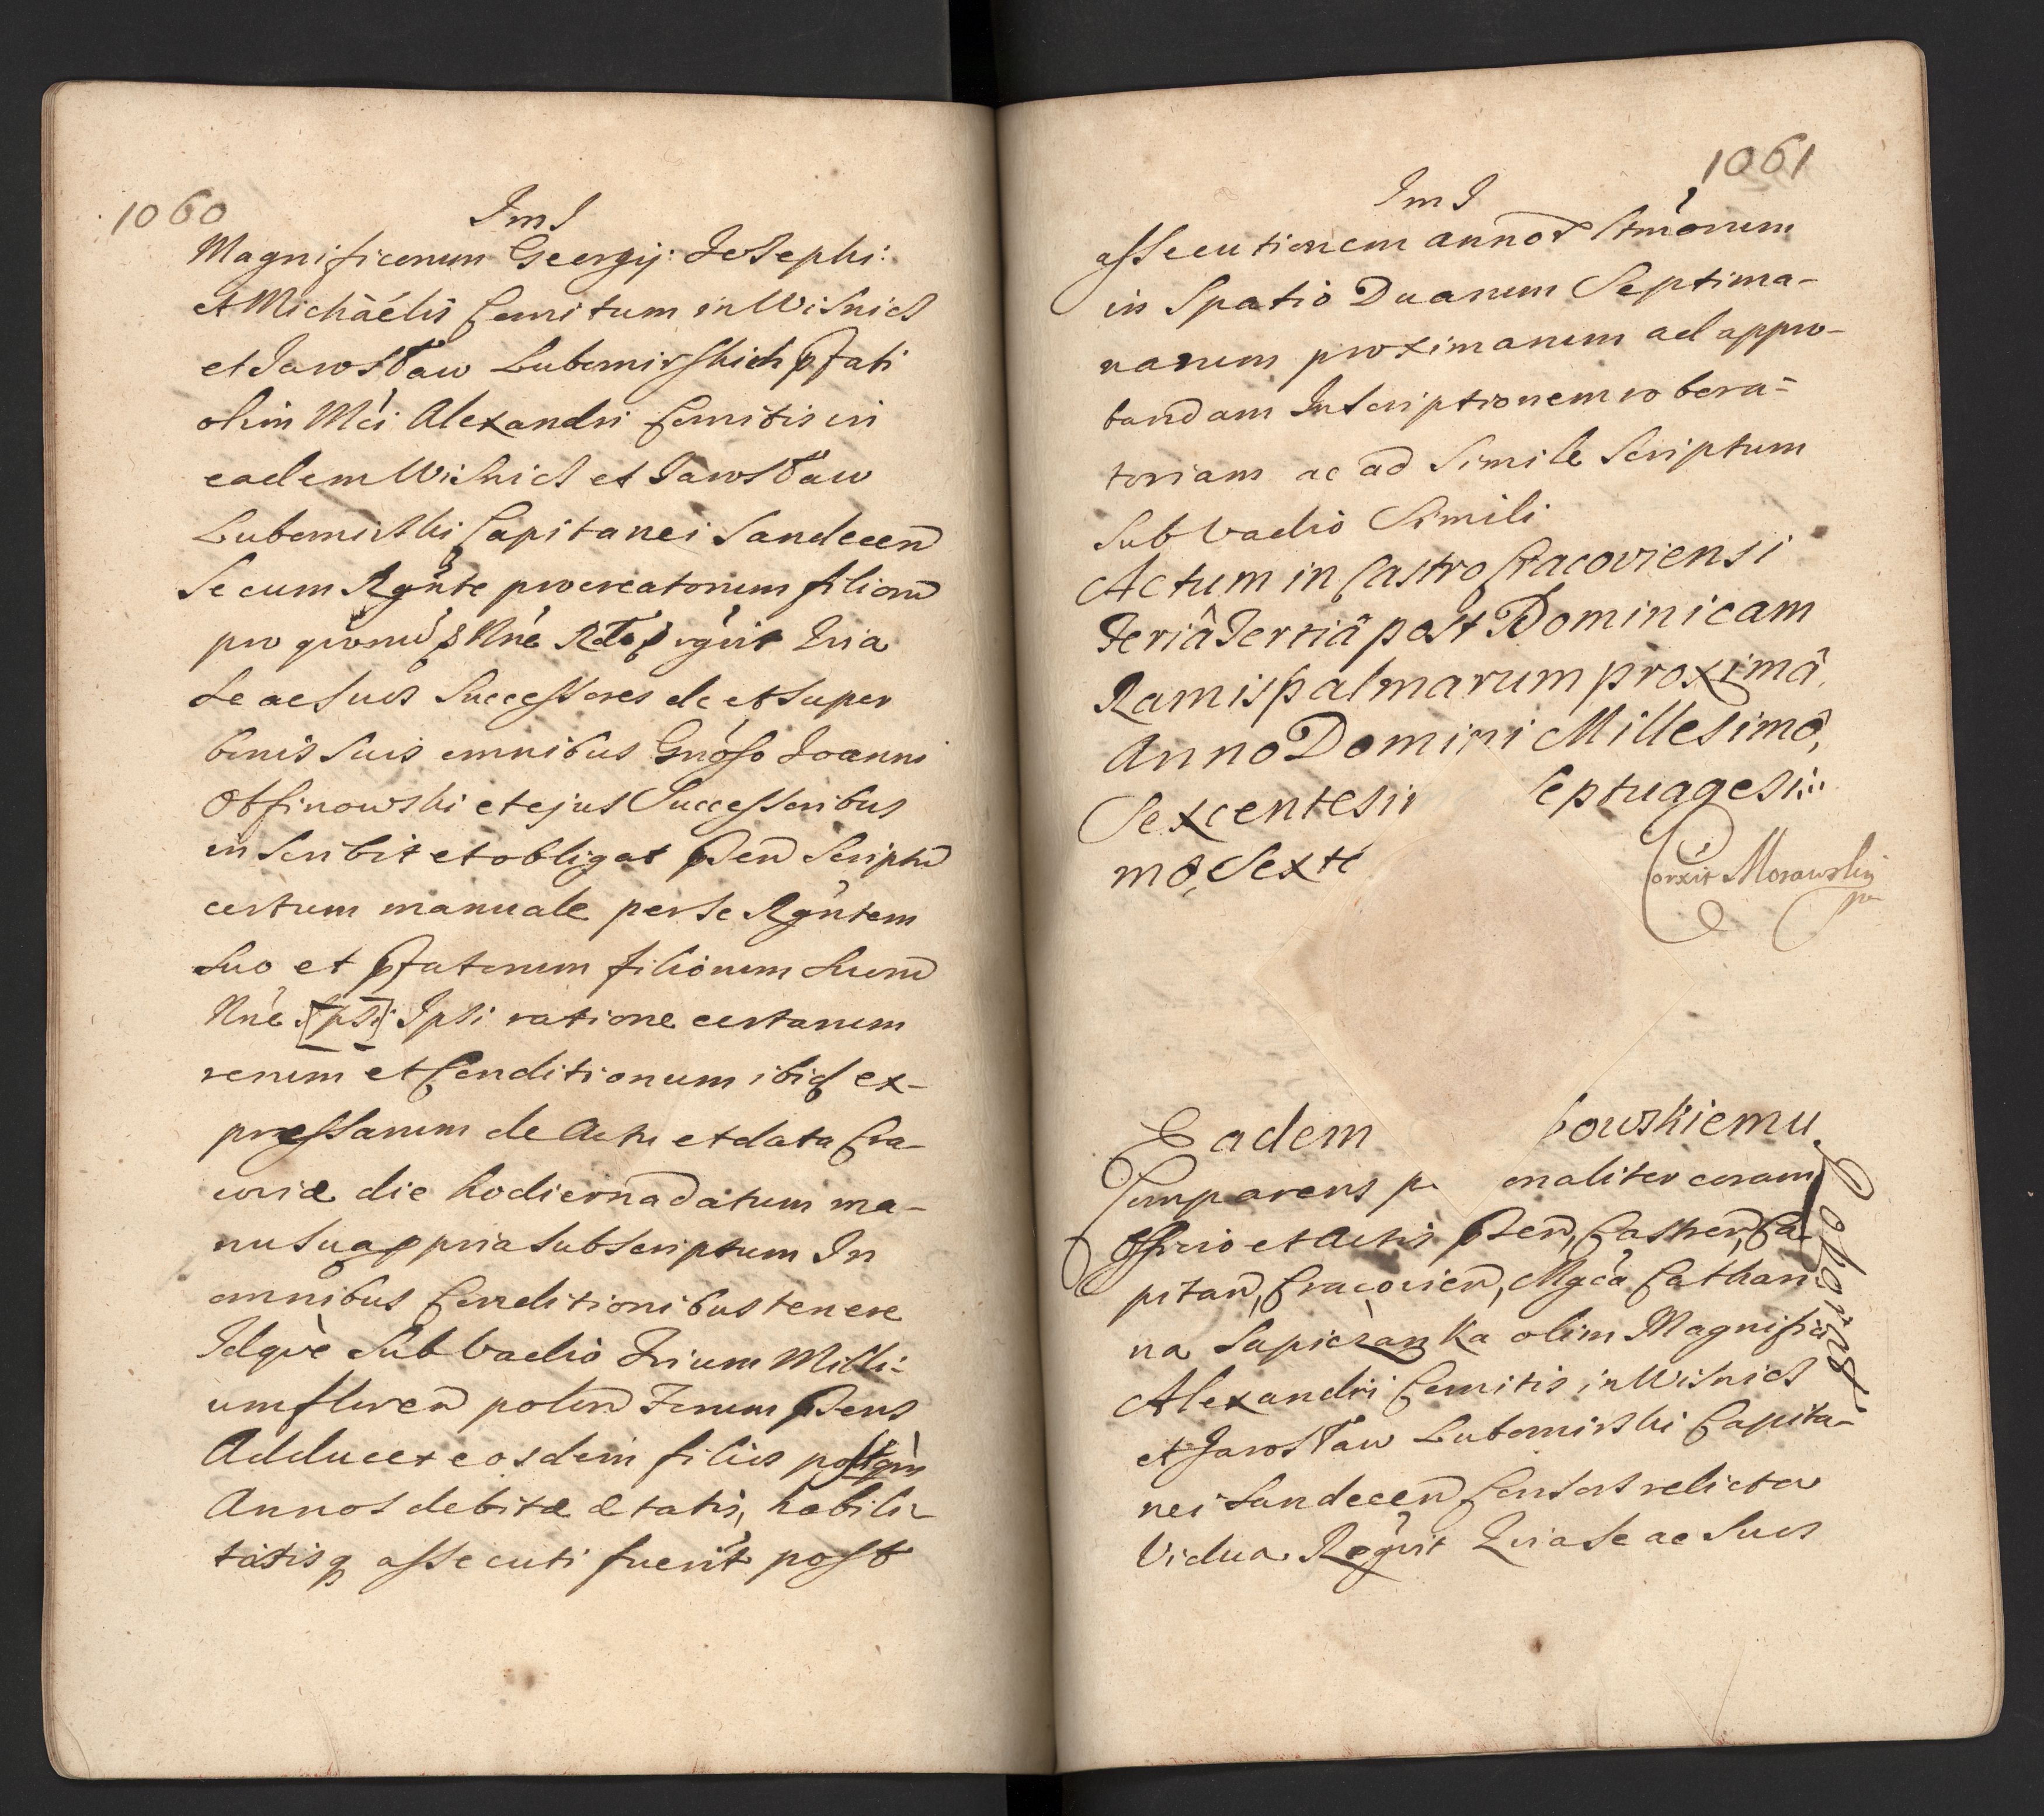 1060
ImJ
Magnificorum Georgij: Josephi:
et Michäélis Comitum in Wisnicz
et Jarosław Lubomirskich pfati
olim Mci Alexandri Comitis in
eadem Wisnicz et Jarosław
Lubomirski Capitanei Sandecen
Secum Rgnte procreatorum filiorū
pro qvorū Nne rgvit Qvia
Se ac Suos Successores de et super
bonis Suis omnibus Gnoso Joanni
Otfinowski et ejus Successoribus
inscribit et obligat Pden Scriptū
certum manuale per se Rgntem
Suo et pfatorum filiorum Suorū
Nne [Ipsi] Ipsi ratione certarum
rerum et Conditionum ibid ex-
pressarum de Actu et data Cra-
coviæ die hodierna datum ma-
nu sua ppria Subscriptum In
omnibus Conditionibus tenere
Idqvè Sub Vadio Trium Milli-
um floren polon Torum Pdens
Adducet eosdem filios postqvm
Annos debitæ ætatis, habili-
tatisq assecuti fuerint post
1061
ImJ
assecutionem annor
in Spatio Duarum Septima-
narum proximarum ad appro-
bandam Inscriptionem robora-
toriam ac ad Simile Scriptum
Sub Vadio Simili
Actum in Castro Cracoviensi
Feriâ Tertiâ post Dominicam
Ramispalmarum proximâ,
Anno Domini Millesimô,
Sexcentesi Septuagesi
mô, Sexto
Corxit Morawsky
mp
Eadem bowskiemu
Comparens pe onaliter coram
Officio et Actis Pden, Castren, Ca
pitan, Cracovien, Mgca Cathari
na Sapiezanka olim Magnifici
Alexandri Comitis in Wisnicz
et Jarosław Lubomirski Capita-
nei Sandecen Consors relicta
Vidua Rgvit Qvia Se ac Suos
Roborat